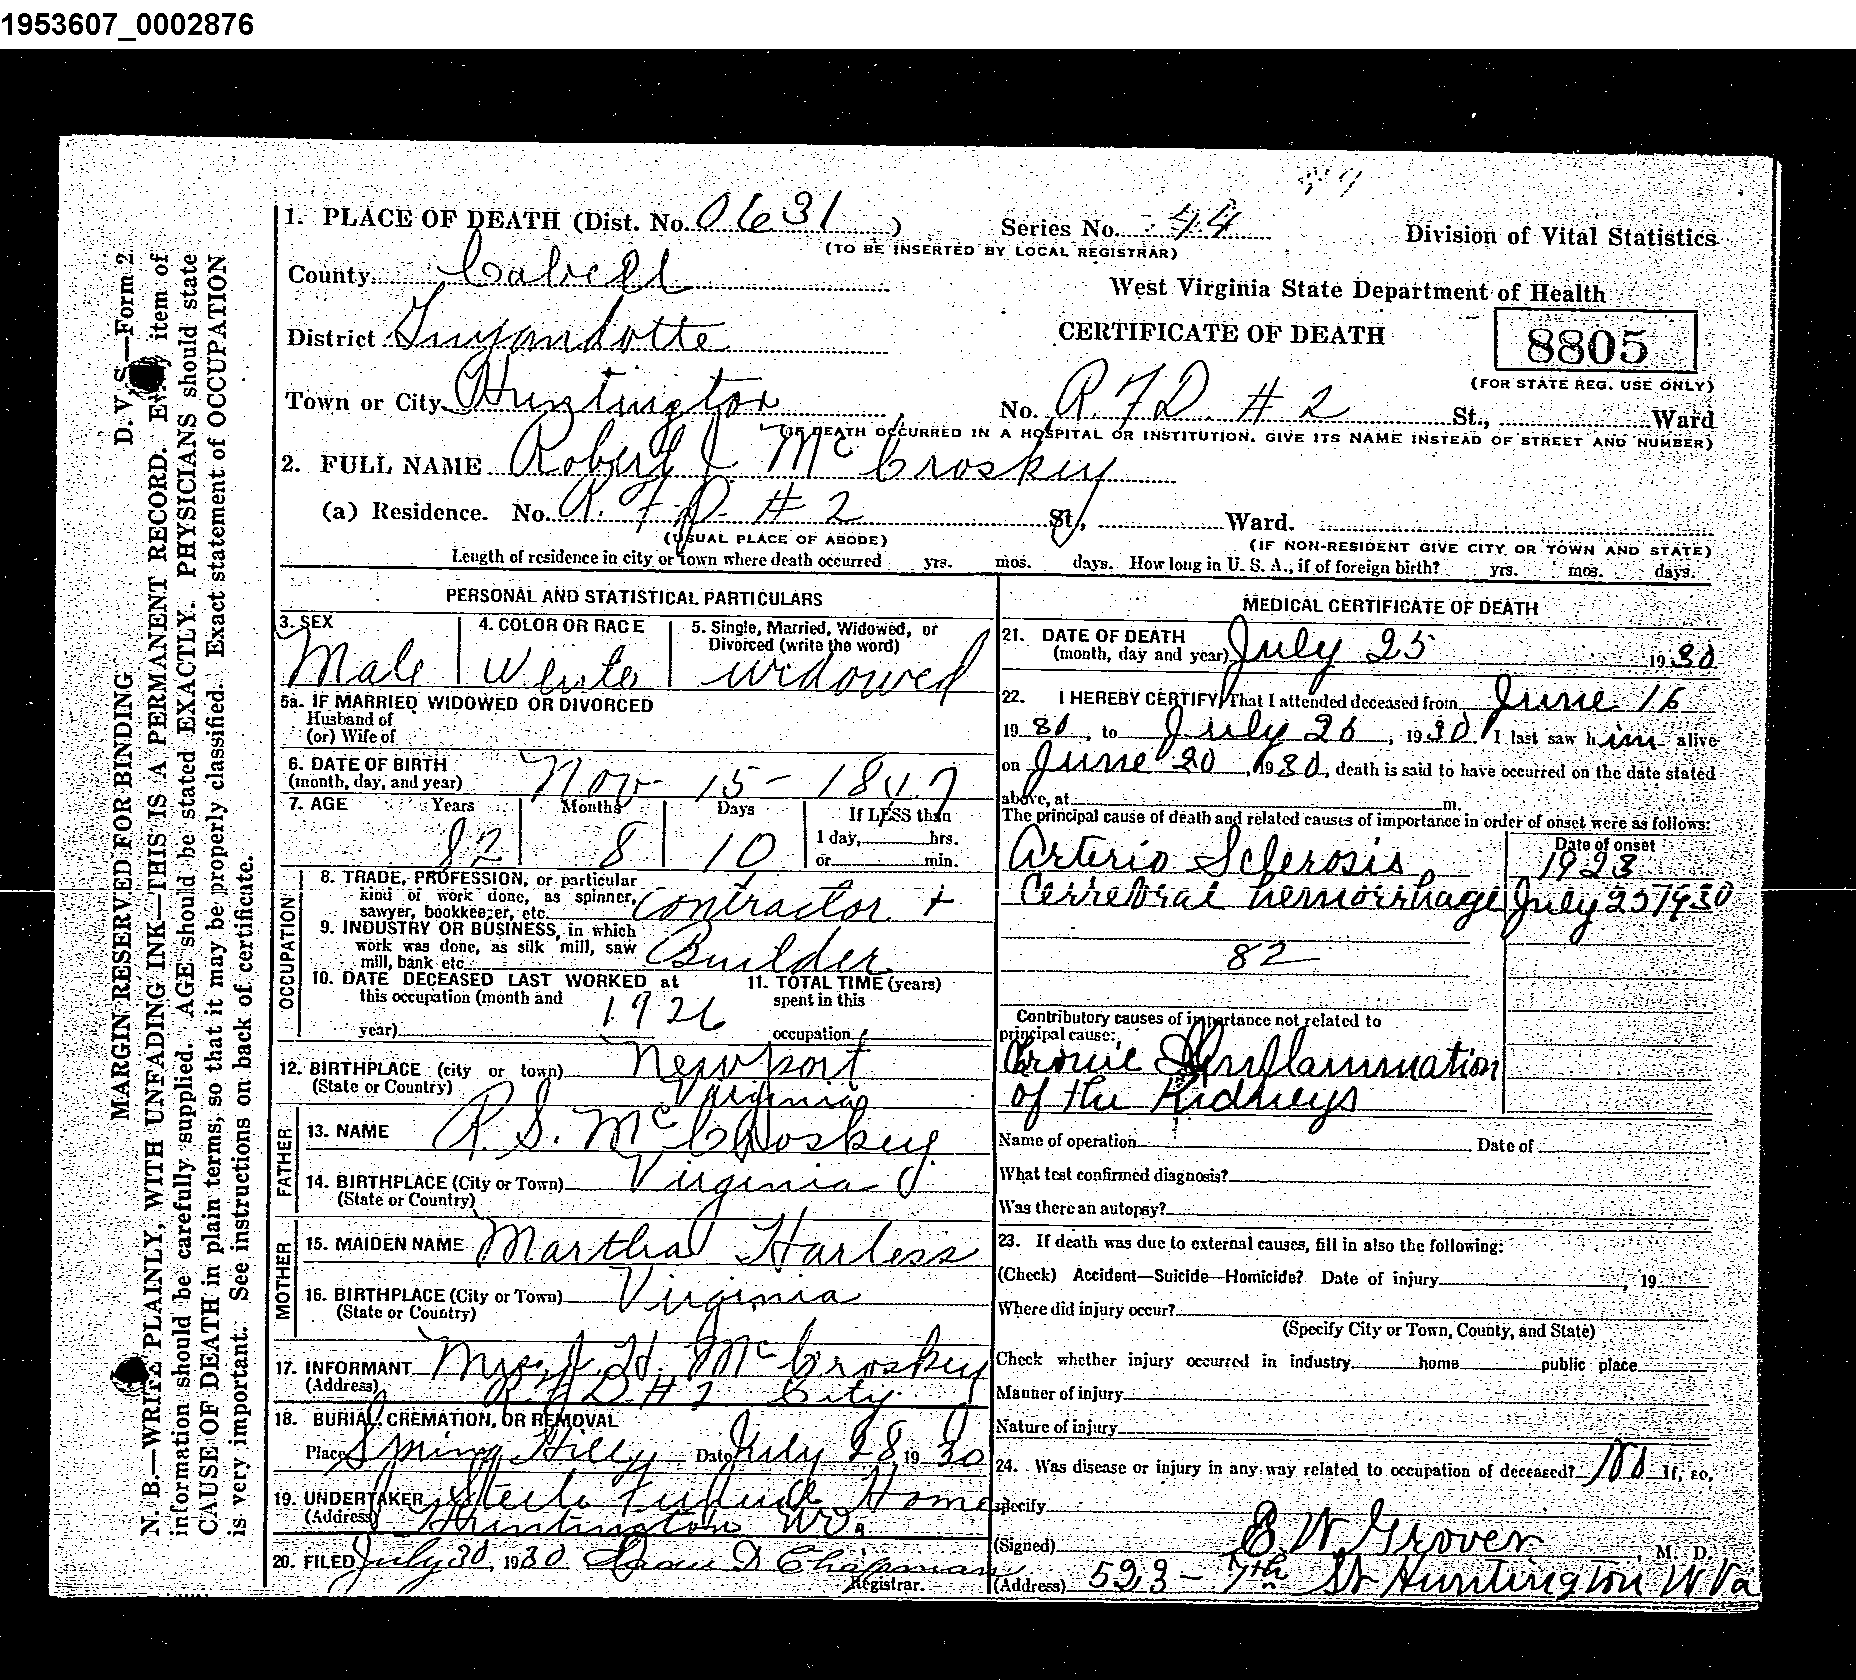 1953607_0002876
1. PLACE OF DEATH (Dist. No. 0631 ) Series No. 44 Division of Vital Statistics
(TO BE INSERTED BY LOCAL REGISTRAR)
County Cabell
West Virginia State Department of Health
District Guyandotte
CERTIFICATE OF DEATH 8805
(FOR STATE REG. USE ONLY)
Town or City Huntington No. R.F.D. #2 St., Ward
(IF DEATH OCCURRED IN A HOSPITAL OR INSTITUTION, GIVE ITS NAME INSTEAD OF STREET AND NUMBER)
2. FULL NAME Robert J McCroskey
(a) Residence. No. R.F.D. #2 St., Ward.
(USUAL PLACE OF ABODE) (IF NON-RESIDENT GIVE CITY OR TOWN AND STATE)
Length of residence in city or town where death occurred yrs. mos. days. How long in U. S. A., if of foreign birth? yrs. mos. days.
PERSONAL AND STATISTICAL PARTICULARS
3. SEX 4. COLOR OR RACE 5. Single, Married, Widowed, or
Divorced (write the word)
Male White widowed
5a. IF MARRIED WIDOWED OR DIVORCED
Husband of
(or) Wife of
6. DATE OF BIRTH
(month, day, and year) Nov - 15 - 1847
7. AGE Years Months Days If LESS than
82 8 10 1 day, hrs.
or min.
OCCUPATION
8. TRADE, PROFESSION, or particular
kind of work done, as spinner,
sawyer, bookkeeper, etc. Contractor +
9. INDUSTRY OR BUSINESS, in which
work was done, as silk mill, saw
mill, bank etc. Builder
10. DATE DECEASED LAST WORKED at 11. TOTAL TIME (years)
this occupation (month and spent in this
year) 1926 occupation
12. BIRTHPLACE (city or town) Newport
(State or Country) Virginia
FATHER
13. NAME R. S. McCroskey
14. BIRTHPLACE (City or Town) Virginia
(State or Country)
MOTHER
15. MAIDEN NAME Martha Harless
16. BIRTHPLACE (City or Town) Virginia
(State or Country)
17. INFORMANT Mrs. J. H. McCroskey
(Address) R.F.D #2 City
18. BURIAL, CREMATION, OR REMOVAL
Place Spring Hill Date July 28 1930
19. UNDERTAKER Steele Funeral Home
(Address) Huntington W.Va.
20. FILED July 30, 1930 D Chapman
Registrar.
MEDICAL CERTIFICATE OF DEATH
21. DATE OF DEATH
(month, day and year) July 25 1930
22. I HEREBY CERTIFY, That I attended deceased from June 16
1930, to July 25, 1930 I last saw him alive
on June 20, 1930, death is said to have occurred on the date stated
above, at m.
The principal cause of death and related causes of importance in order of onset were as follows:
Date of onset
Arterio Sclerosis 1928
Cerrebral hemorrhage July 25 1930
82
Contributory causes of importance not related to
principal cause:
Cronic Inflammation
of the Kidneys
Name of operation Date of
What test confirmed diagnosis?
Was there an autopsy?
23. If death was due to external causes, fill in also the following:
(Check) Accident—Suicide—Homicide? Date of injury , 19
Where did injury occur?
(Specify City or Town, County, and State)
Check whether injury occurred in industry home public place
Manner of injury
Nature of injury
24. Was disease or injury in any way related to occupation of deceased? No If, so,
specify
(Signed) E. W. Grover, M. D.
(Address) 523 - 7th St Huntington W Va
D. V. S.—Form 2
MARGIN RESERVED FOR BINDING
N. B.—WRITE PLAINLY, WITH UNFADING INK—THIS IS A PERMANENT RECORD. Every item of
information should be carefully supplied. AGE should be stated EXACTLY. PHYSICIANS should state
CAUSE OF DEATH in plain terms, so that it may be properly classified. Exact statement of OCCUPATION
is very important. See instructions on back of certificate.